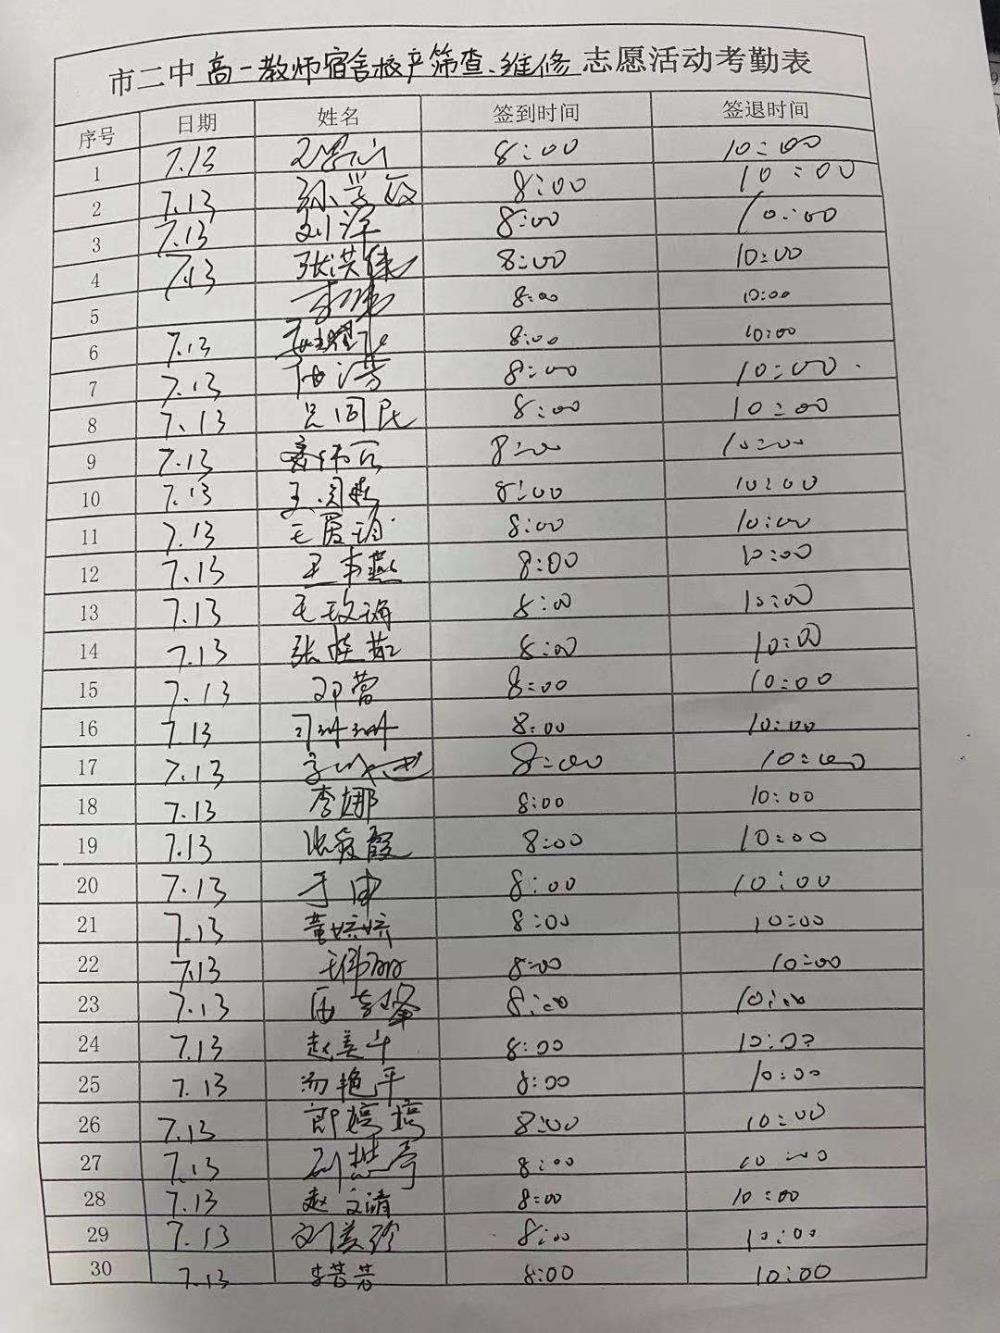 市二中高一教师宿舍校产筛查、维修志愿活动考勤表
序号 日期 姓名 签到时间 签退时间
1 7.13 8:00 10:00
2 7.13 孙学敏 8:00 10:00
3 7.13 刘洋 8:00 10:00
4 7.13 张洪伟 8:00 10:00
5 8:00 10:00
6 7.13 8:00 10:00
7 7.13 8:00 10:00
8 7.13 8:00 10:00
9 7.13 8:00 10:00
10 7.13 8:00 10:00
11 7.13 8:00 10:00
12 7.13 8:00 10:00
13 7.13 8:00 10:00
14 7.13 张桂茹 8:00 10:00
15 7.13 邓蕾 8:00 10:00
16 7.13 8:00 10:00
17 7.13 8:00 10:00
18 7.13 李娜 8:00 10:00
19 7.13 张爱霞 8:00 10:00
20 7.13 8:00 10:00
21 7.13 董婷婷 8:00 10:00
22 7.13 王伟丽 8:00 10:00
23 7.13 8:00 10:00
24 7.13 赵美斗 8:00 10:00
25 7.13 汤艳平 8:00 10:00
26 7.13 郎婷婷 8:00 10:00
27 7.13 8:00 10:00
28 7.13 赵文清 8:00 10:00
29 7.13 刘美玲 8:00 10:00
30 7.13 李芸芸 8:00 10:00